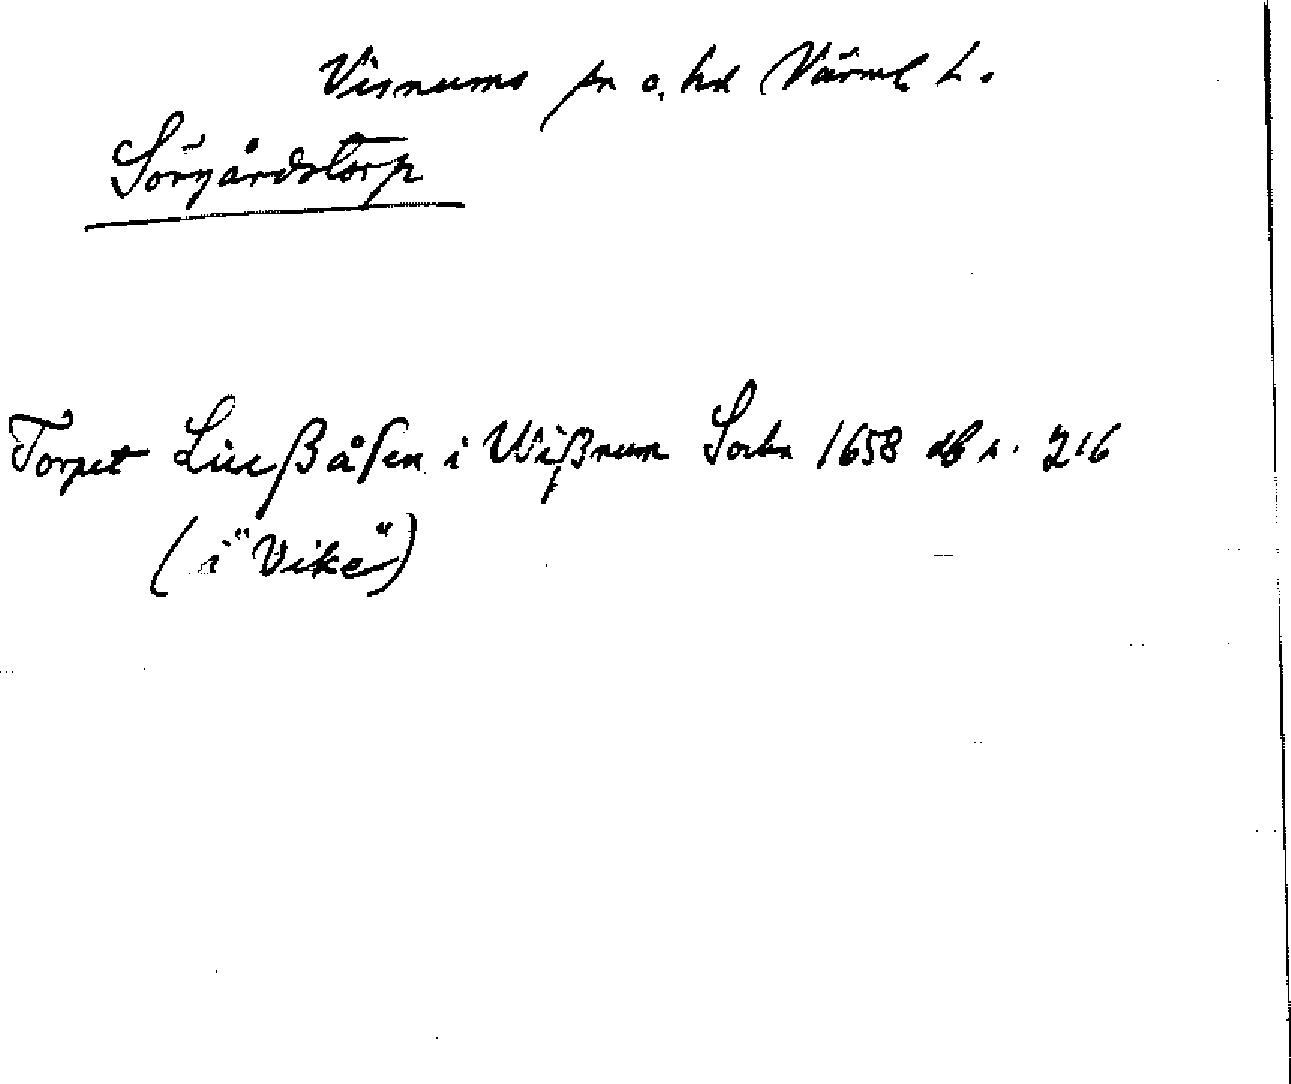 Visnums sn o. hd Värml L.
Sörgårdstorp
Torpet Liußåsen i Wißnum Sockn 1658 db s. 216
(i "Vike")